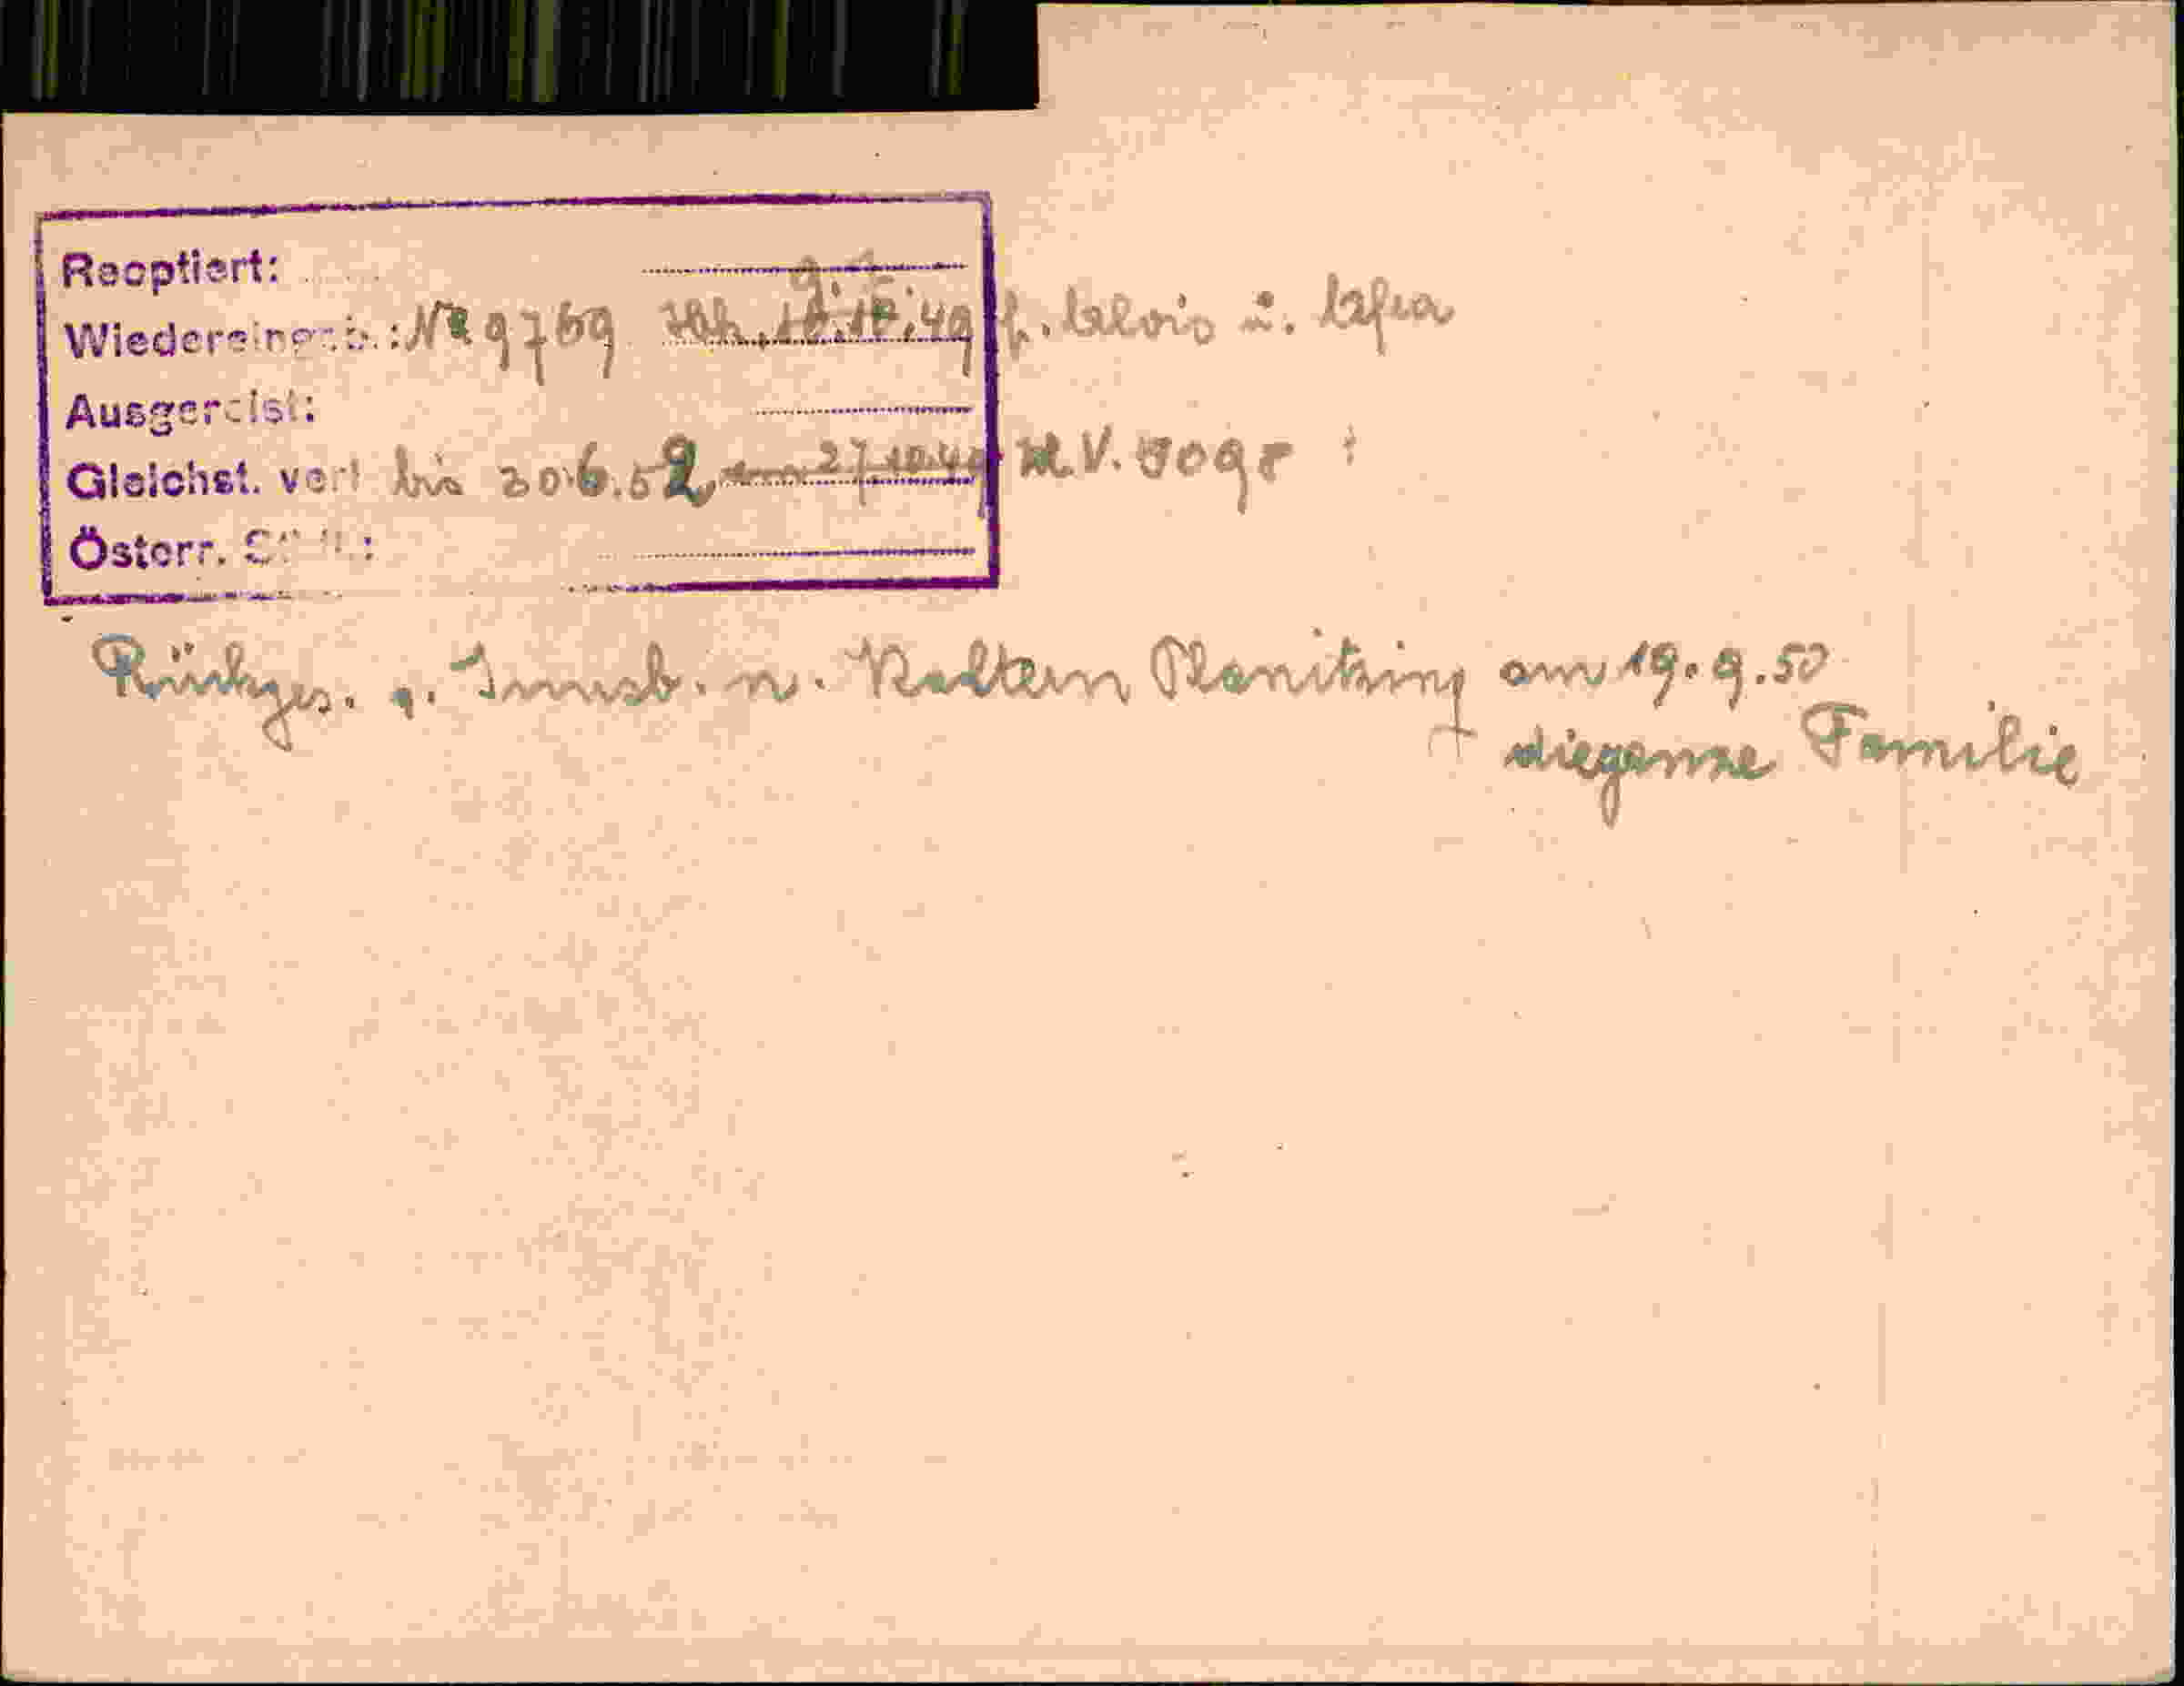 Reoptiert:
Wiedereinerb.: No 9769 49 f. Alois u.
Ausgereist:
Gleichst. verl bis 30.6.52, am 27.10.49 M.V.
Österr.
Rückges. v. Innsb. n. Kaltern Planitzing am 19.9.50
+ dieganze Familie